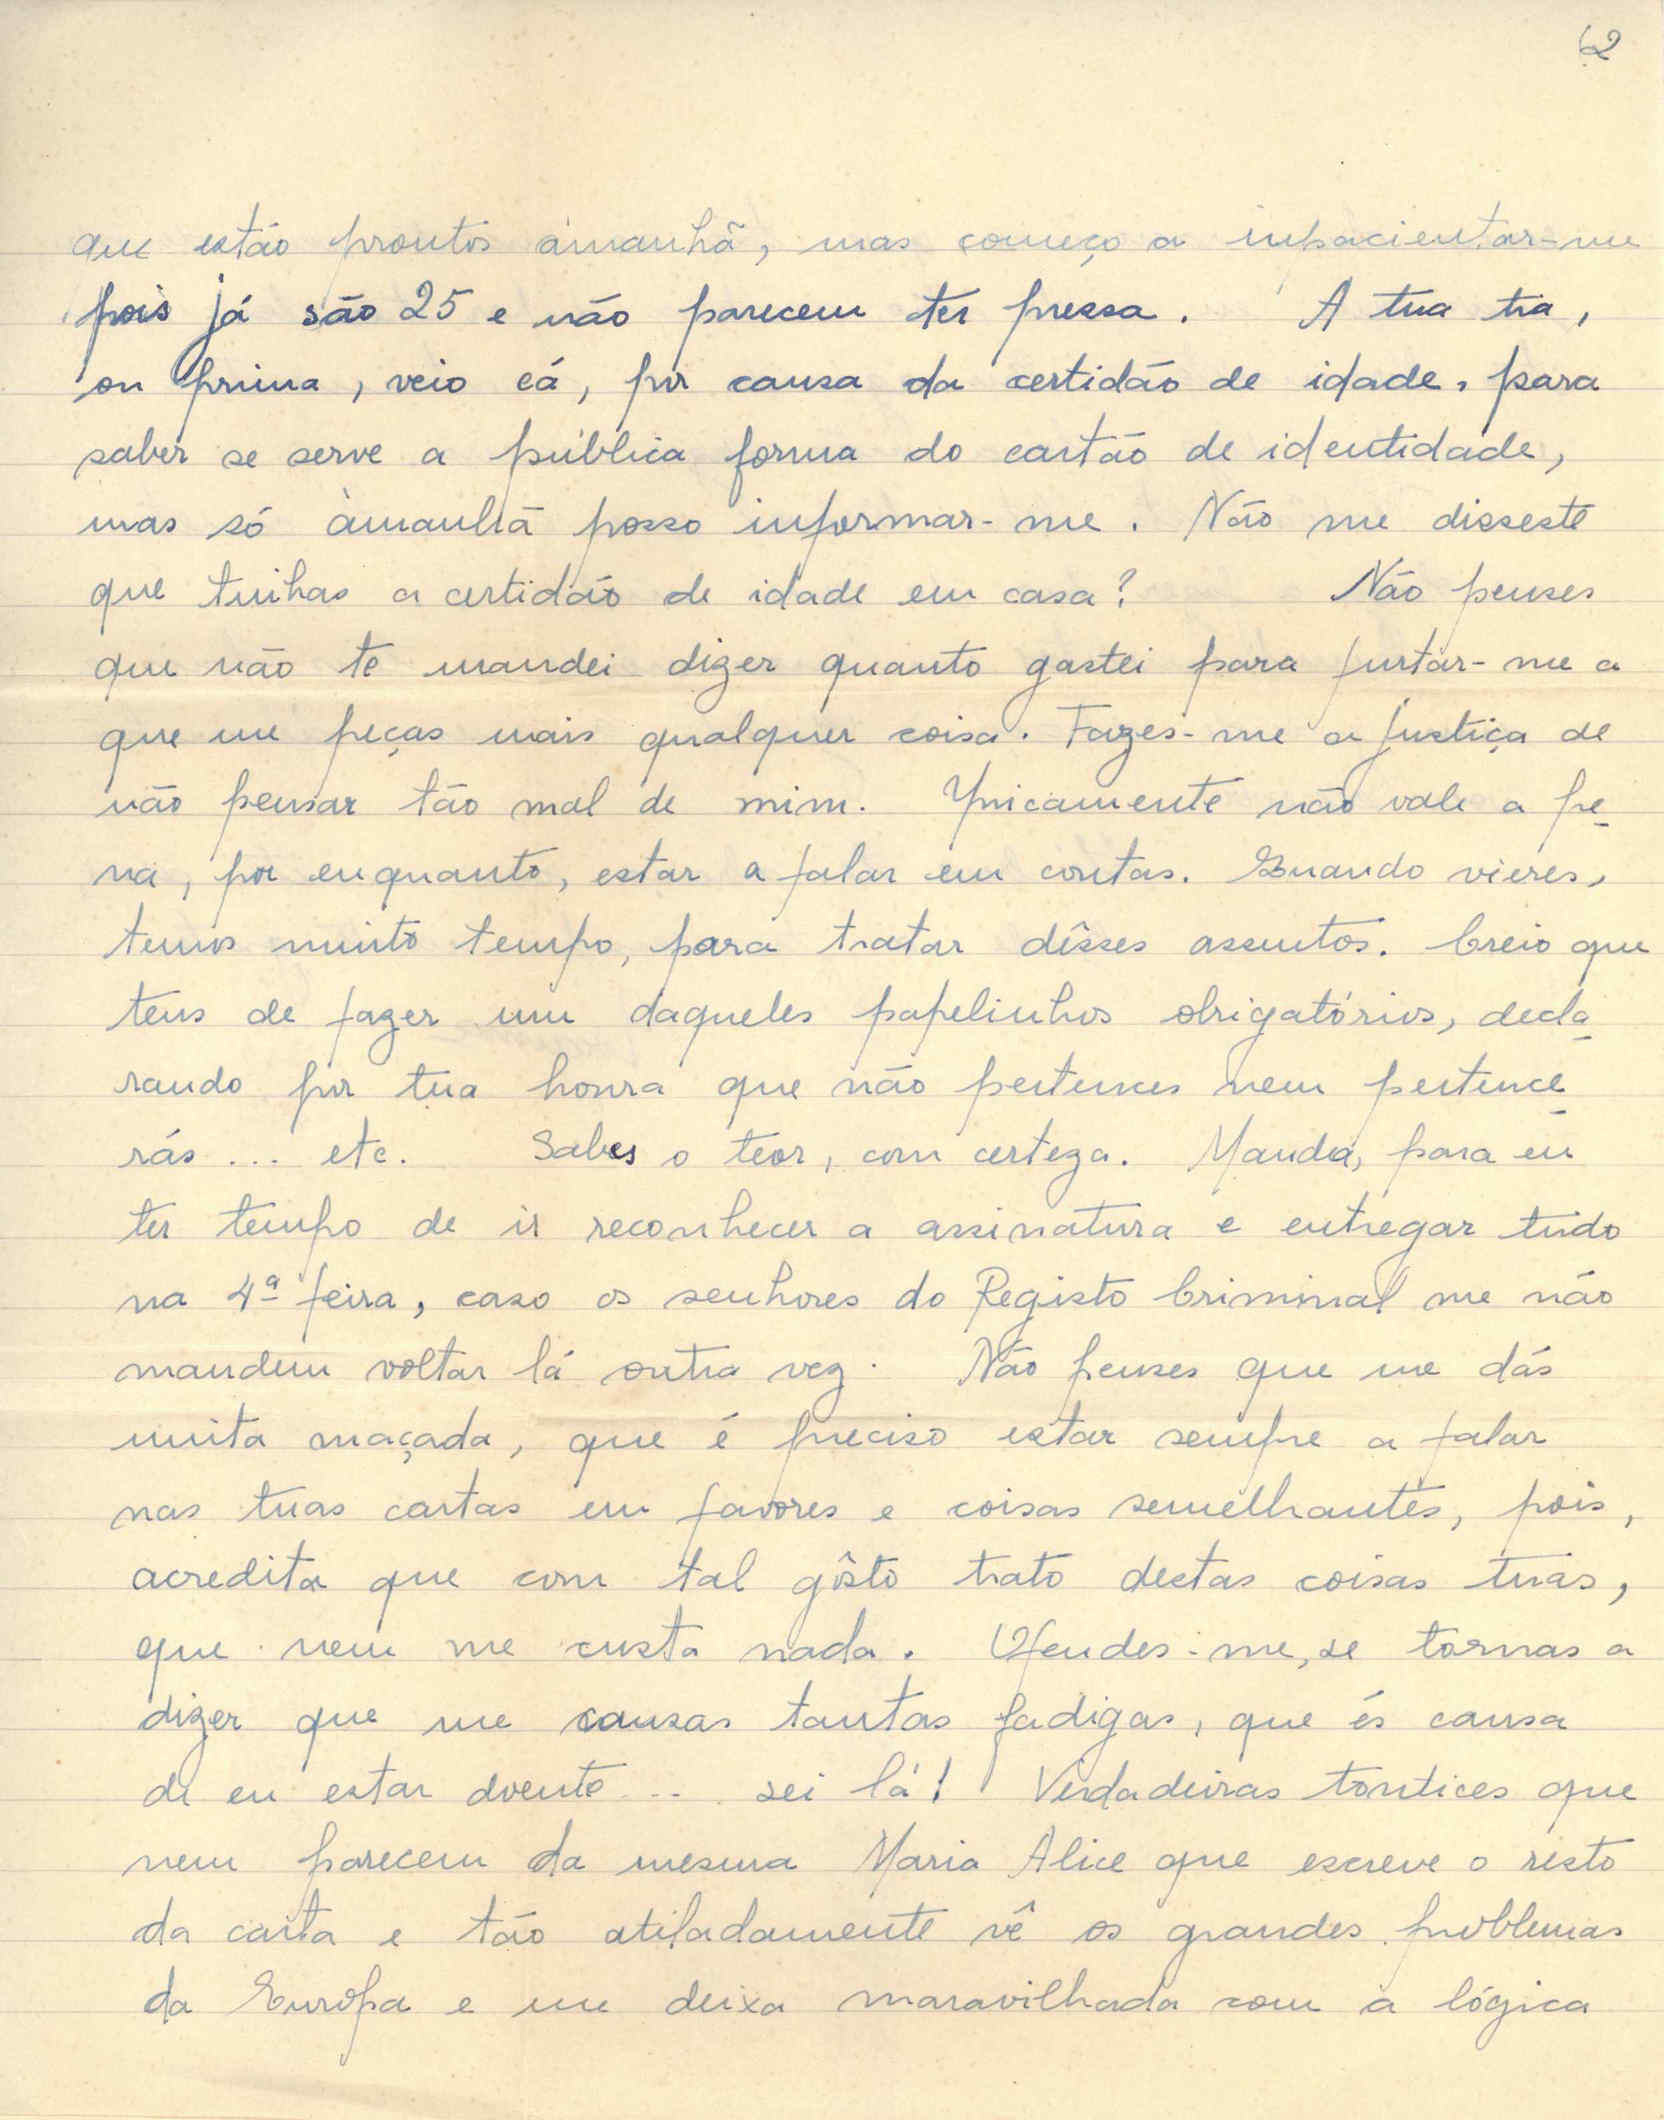 62
que estão prontos àmanhã, mas começo a impacientar-me
pois já são 25 e não parecem ter pressa. A tua tia,
ou prima, veio cá, por causa da certidão de idade, para
saber se serve a pública forma do cartão de identidade,
mas só àmanhã posso informar-me. Não me disseste
que tinhas a certidão de idade em casa? Não penses
que não te mandei dizer quanto gastei para furtar-me a
que me peças mais qualquer coisa. Fazes-me a justiça de
não pensar tão mal de mim. Unicamente não vale a pe-
na, por enquanto, estar a falar em contas. Quando vieres,
temos muito tempo, para tratar dêsses assuntos. Creio que
tens de fazer um daqueles papelinhos obrigatórios, decla-
rando por tua honra que não pertences nem pertence-
rás ... etc. Sabes o teor, com certeza. Manda, para eu
ter tempo de ir reconhecer a assinatura e entregar tudo
na 4ª feira, caso os senhores do Registo Criminal me não
mandem voltar lá outra vez. Não penses que me dás
muita maçada, que é preciso estar sempre a falar
nas tuas cartas em favores e coisas semelhantes, pois,
acredita que com tal gôsto trato destas coisas tuas,
que nem me custa nada. Ofendes-me, se tornas a
dizer que me causas tantas fadigas, que és causa
de eu estar doente ... sei lá! Verdadeiras tontices que
nem parecem da mesma Maria Alice que escreve o resto
da carta e tão atiladamente vê os grandes problemas
da Europa e me deixa maravilhada com a lógica